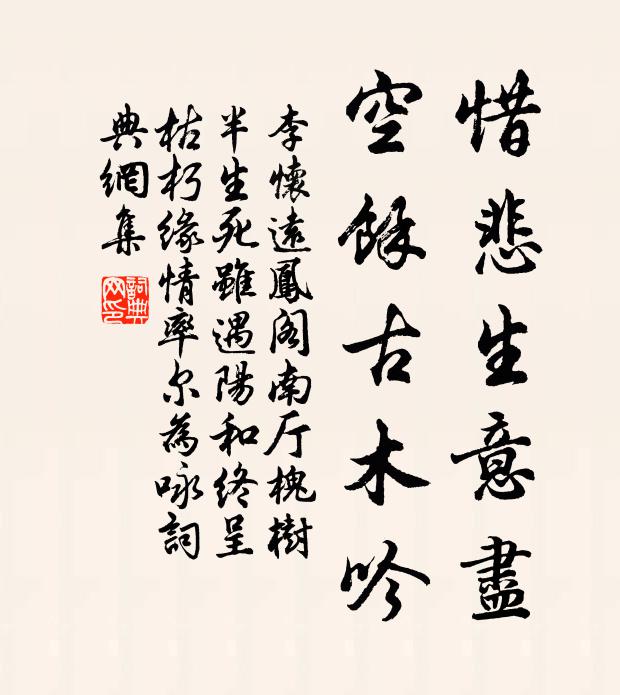 惜悲生意盡
空餘古木吟
李懷遠鳳阁南厅槐樹
半生死雖遇陽和终呈
枯朽缘情率尔為咏詞
典網集
詞典网印